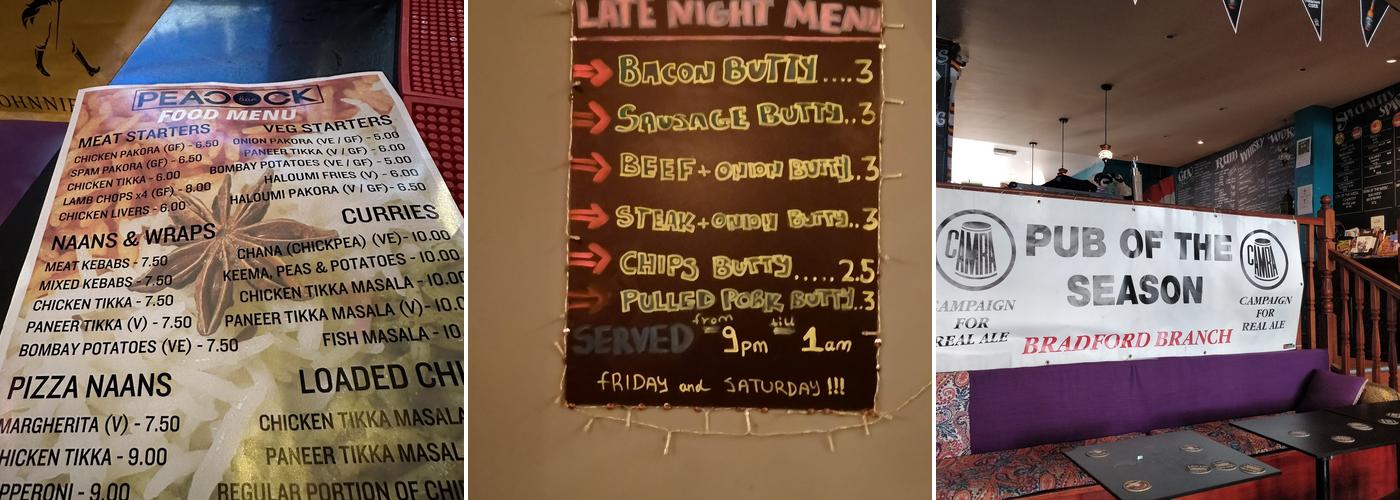 JOHNNIE
PEACOCK
bar
FOOD MENU
MEAT STARTERS
CHICKEN PAKORA (GF) - 6.50
SPAM PAKORA (GF) - 6.50
CHICKEN TIKKA - 6.00
LAMB CHOPS x4 (GF) - 8.00
CHICKEN LIVERS - 6.00
VEG STARTERS
ONION PAKORA (VE / GF) - 5.00
PANEER TIKKA (V / GF) - 6.00
BOMBAY POTATOES (VE / GF) - 5.00
HALOUMI FRIES (V) - 6.00
HALOUMI PAKORA (V / GF) - 6.50
NAANS & WRAPS
MEAT KEBABS - 7.50
MIXED KEBABS - 7.50
CHICKEN TIKKA - 7.50
PANEER TIKKA (V) - 7.50
BOMBAY POTATOES (VE) - 7.50
CURRIES
CHANA (CHICKPEA) (VE) - 10.00
KEEMA, PEAS & POTATOES - 10.00
CHICKEN TIKKA MASALA - 10.00
PANEER TIKKA MASALA (V) - 10.00
FISH MASALA - 10
PIZZA NAANS
MARGHERITA (V) - 7.50
HICKEN TIKKA - 9.00
PPERONI - 9.00
LOADED CHI
CHICKEN TIKKA MASALA
PANEER TIKKA MASAL
REGULAR PORTION OF CHI
LATE NIGHT MENU
BACON BUTTY....3
SAUSAGE BUTTY..3
BEEF + ONION BUTTY.3
STEAK + ONION BUTTY..3
CHIPS BUTTY.....2.5
PULLED PORK BUTTY.3
SERVED from 9pm till 1am
FRIDAY and SATURDAY!!!
GIN
RUM
WHISKY
CAMRA
CAMPAIGN
FOR
REAL ALE
PUB OF THE
SEASON
BRADFORD BRANCH
CAMRA
CAMPAIGN
FOR
REAL ALE